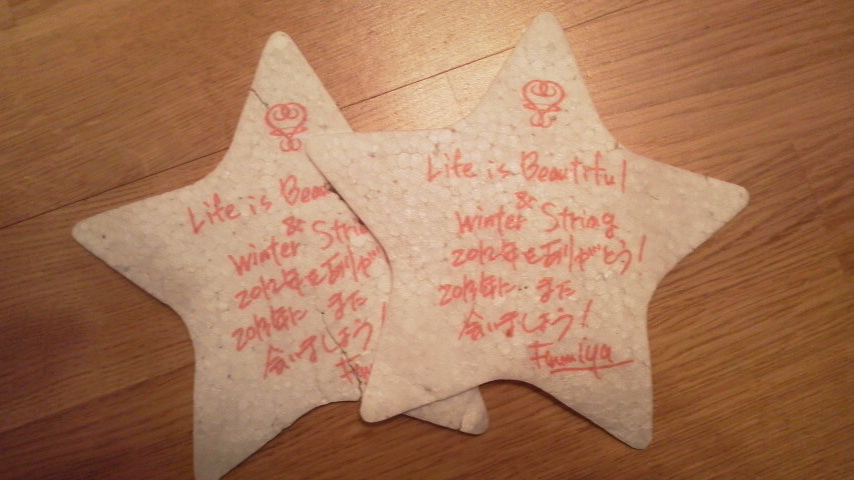 Life is Beau
&
Winter Strin
2012年もありがと
2013年に また
会いましょう!
Fu
Life is Beautiful
&
Winter String
2012年もありがとう!
2013年に また
会いましょう!
Fumiya